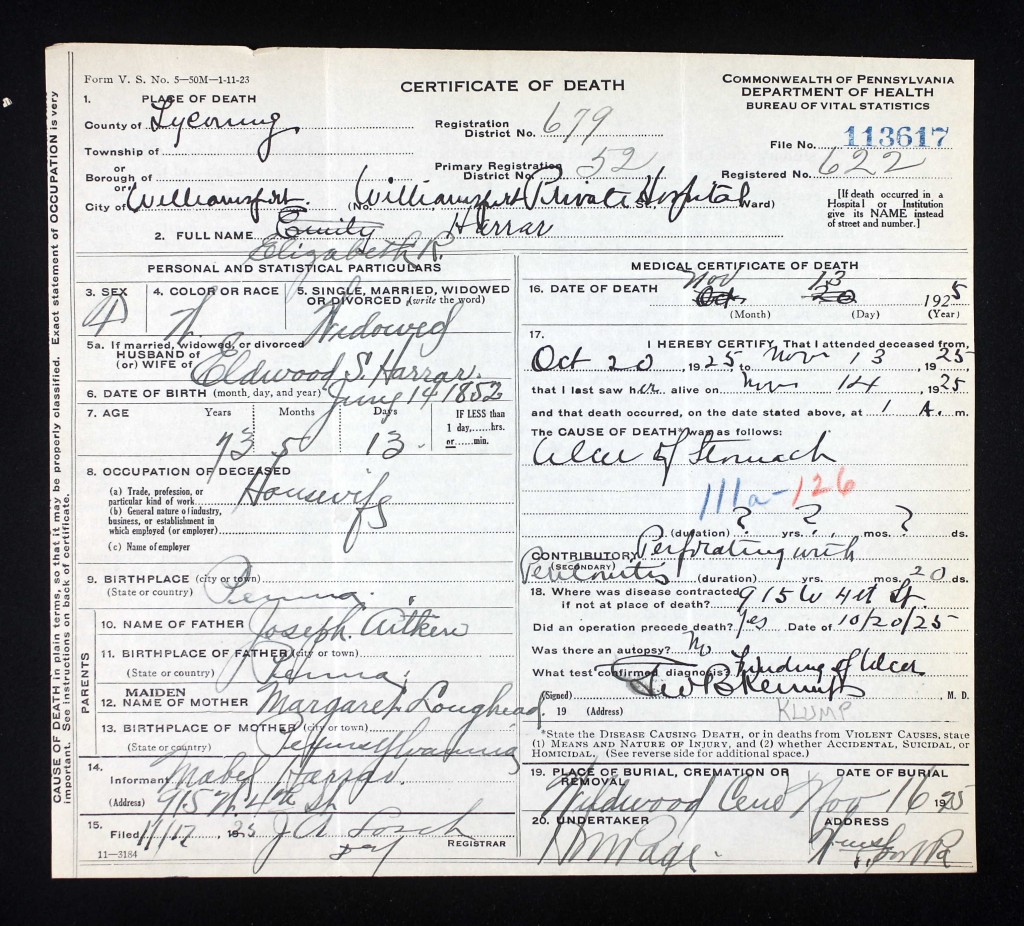 Form V. S. No. 5—50M—1-11-23
CERTIFICATE OF DEATH
COMMONWEALTH OF PENNSYLVANIA
DEPARTMENT OF HEALTH
BUREAU OF VITAL STATISTICS
1. PLACE OF DEATH
County of Lycoming
Township of
or
Borough of
or
City of Williamsport.
Registration District No. 679
Primary Registration District No. 52
File No. 113617
Registered No. 622
(No. Williamsport Private Hospital St., Ward)
[If death occurred in a Hospital or Institution give its NAME instead of street and number.]
2. FULL NAME Emily Harrar
Elizabeth R.
PERSONAL AND STATISTICAL PARTICULARS
3. SEX
4. COLOR OR RACE W.
5. SINGLE, MARRIED, WIDOWED OR DIVORCED (write the word) Widowed
5a. If married, widowed, or divorced
HUSBAND of
(or) WIFE of Eldwood S. Harrar.
6. DATE OF BIRTH (month, day, and year) June 14 1852
7. AGE Years Months Days IF LESS than
1 day,....hrs.
or....min.
73 5 13
8. OCCUPATION OF DECEASED
(a) Trade, profession, or particular kind of work Housewife
(b) General nature of industry, business, or establishment in which employed (or employer)
(c) Name of employer
9. BIRTHPLACE (city or town)
(State or country) Penna.
PARENTS
10. NAME OF FATHER Joseph Aitken
11. BIRTHPLACE OF FATHER (city or town)
(State or country) Penna.
12. MAIDEN NAME OF MOTHER Margaret Loughead
13. BIRTHPLACE OF MOTHER (city or town)
(State or country) Pennsylvania
14. Informant Mabel Harrar.
(Address) 915 W. 4th St.
15. Filed 11/17, 1925 J A Losch
REGISTRAR
11—3184
MEDICAL CERTIFICATE OF DEATH
16. DATE OF DEATH Nov 13
Oct 20 1925
(Month) (Day) (Year)
17. I HEREBY CERTIFY, That I attended deceased from
Oct 20, 1925 to Nov 13, 1925
that I last saw her alive on Nov 14, 1925
and that death occurred, on the date stated above, at 1 A. m.
The CAUSE OF DEATH* was as follows:
Ulcer of Stomach
111a-126
(duration) ? yrs. ? mos. ? ds.
CONTRIBUTORY Perforating with
(SECONDARY)
Peritonitis (duration) yrs. mos. 20 ds.
18. Where was disease contracted
if not at place of death? 915 W 4th St.
Did an operation precede death? Yes Date of 10/20/25
Was there an autopsy? No
What test confirmed diagnosis? Finding of Ulcer
(Signed) M. D.
, 19 (Address) KLUMP
*State the DISEASE CAUSING DEATH, or in deaths from VIOLENT CAUSES, state
(1) MEANS AND NATURE OF INJURY, and (2) whether ACCIDENTAL, SUICIDAL, or
HOMICIDAL. (See reverse side for additional space.)
19. PLACE OF BURIAL, CREMATION OR REMOVAL
DATE OF BURIAL
Wildwood Cem Nov 16 1925
20. UNDERTAKER ADDRESS
Page. Pa
CAUSE OF DEATH in plain terms, so that it may be properly classified. Exact statement of OCCUPATION is very
important. See instructions on back of certificate.